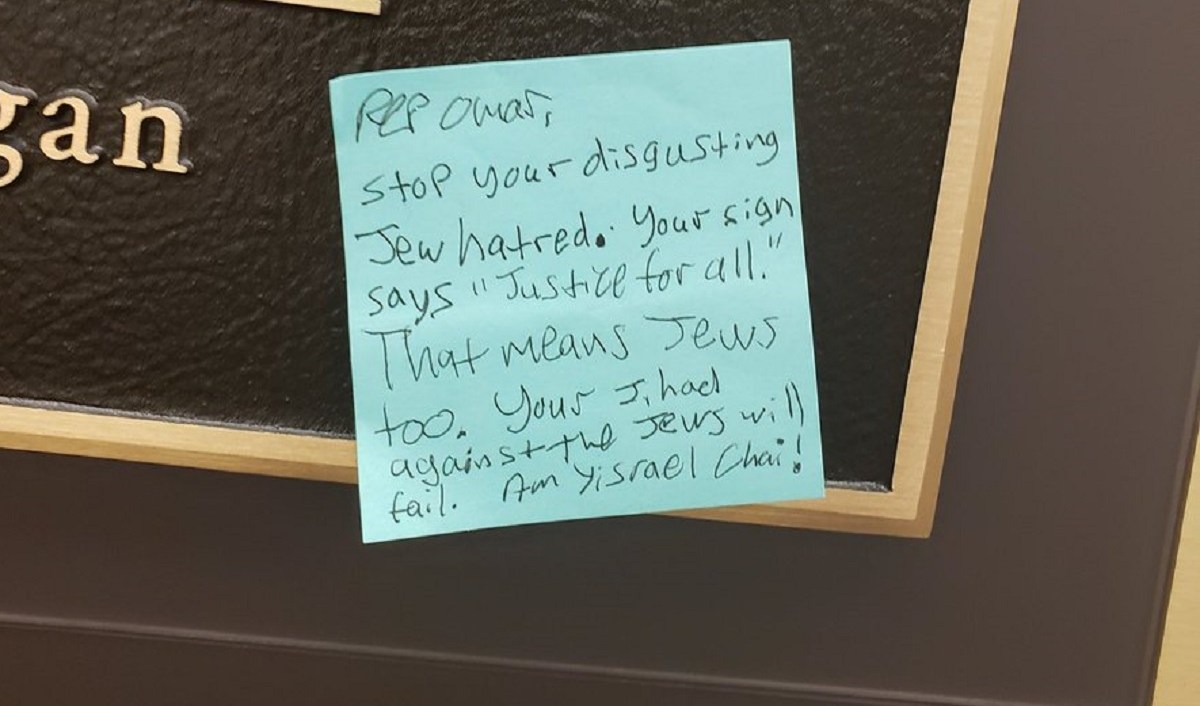 gan
Rep Omar,
Stop your disgusting
Jew hatred. Your sign
says "Justice for all."
That means Jews
too. Your Jihad
against the Jews will
fail. Am Yisrael Chai!